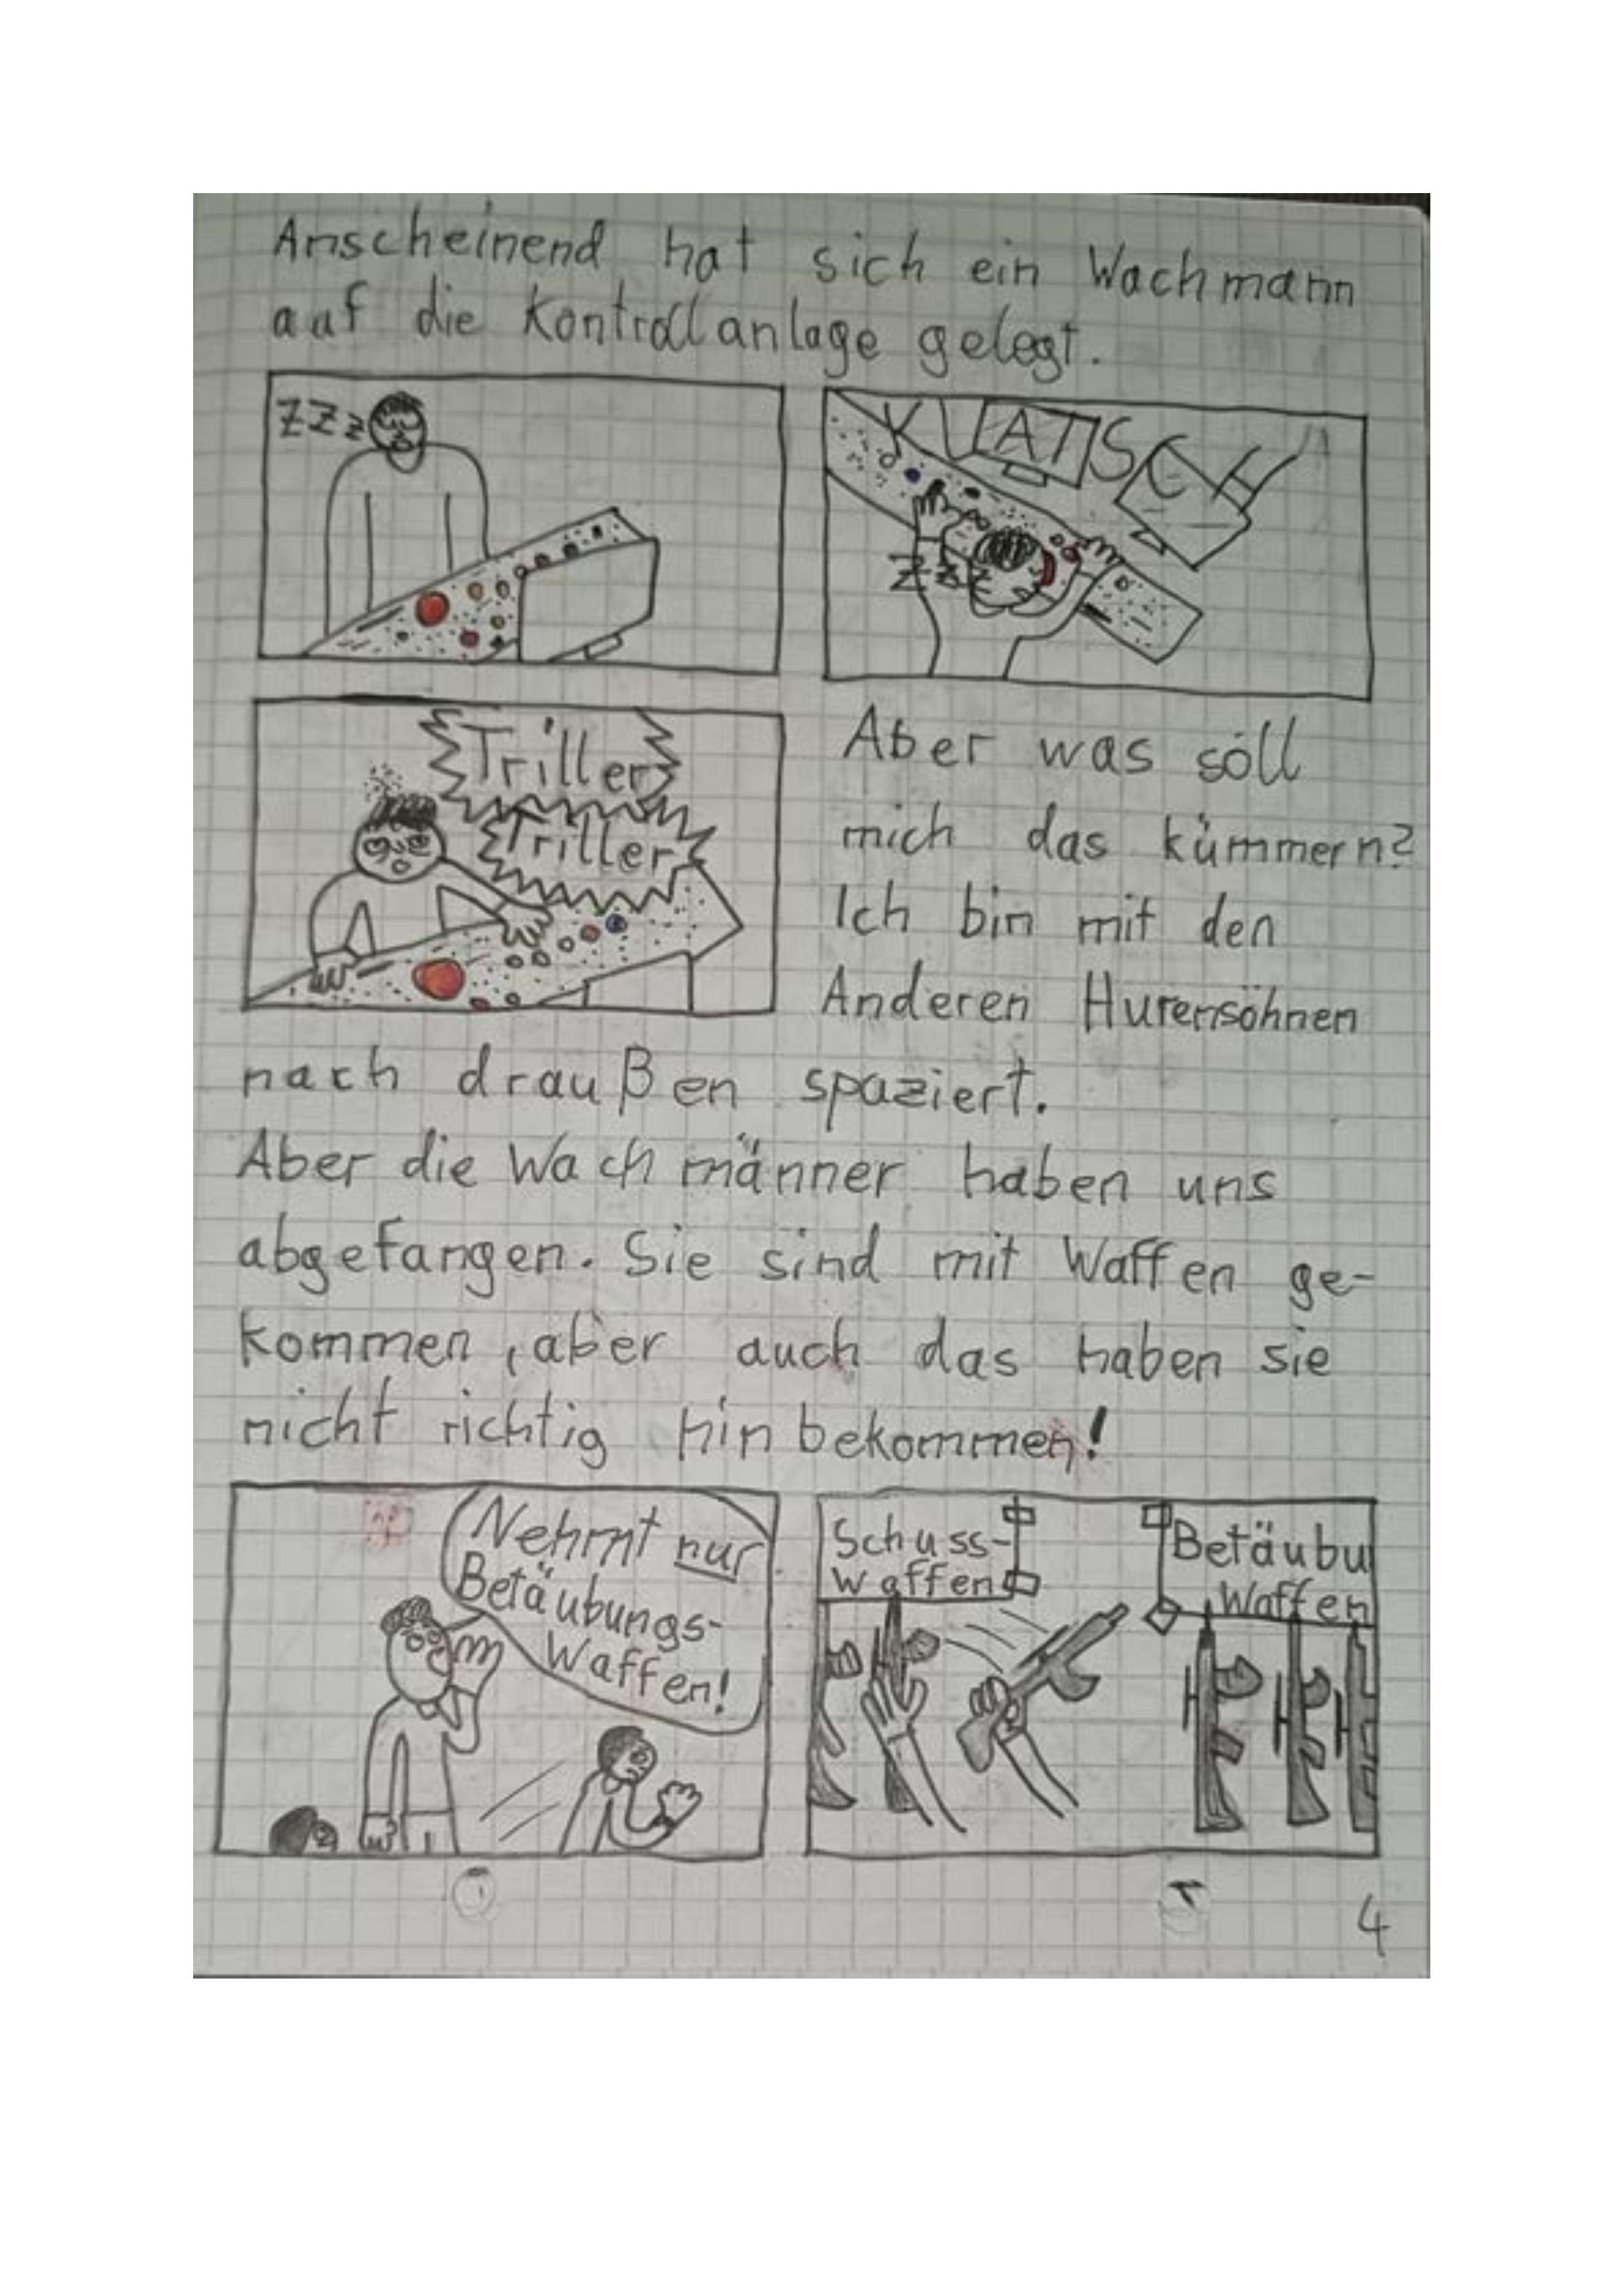 Anscheinend hat sich ein Wachmann
auf die Kontrollanlage gelegt.
ZZz
KLATSCH
ZZz
Triller
Triller
Aber was soll
mich das kümmern?
Ich bin mit den
Anderen Hurensöhnen
nach draußen spaziert.
Aber die Wachmänner haben uns
abgefangen. Sie sind mit Waffen ge-
kommen, aber auch das haben sie
nicht richtig hinbekommen!
Nehmt nur
Betäubungs-
Waffen!
Schuss-
Waffen
Betäubu
Waffen
4